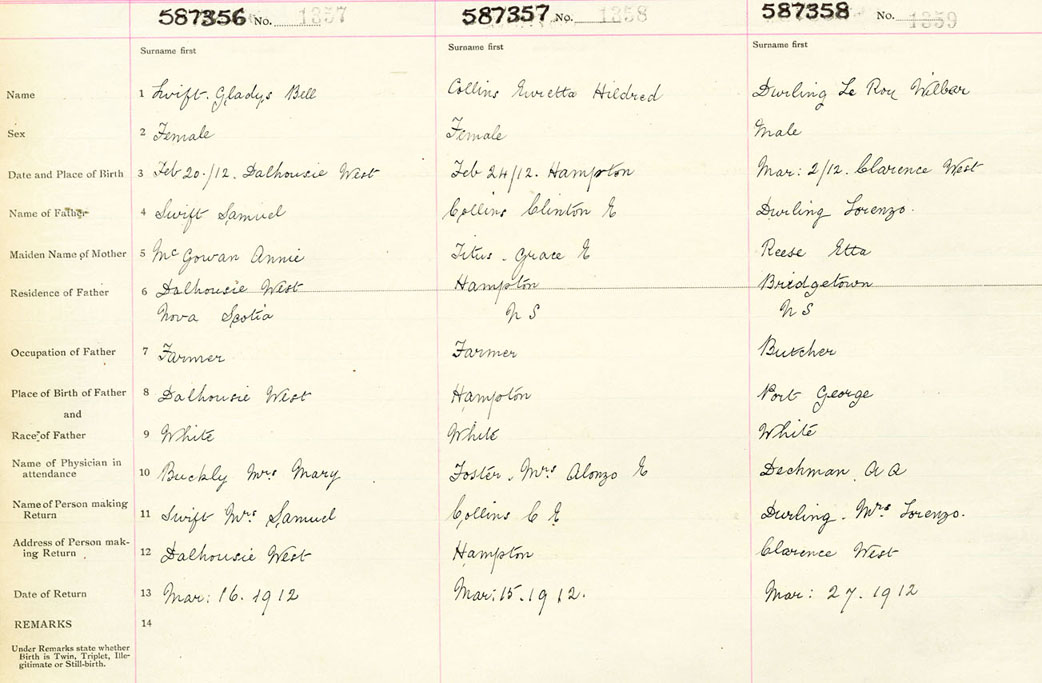 587356 No. 1357 587357 No. 1358 587358 No. 1359
Surname first Surname first Surname first
Name 1 Swift. Gladys Bell Collins Evretta Hildred Durling Le Roy Wilbar
Sex 2 Female Female Male
Date and Place of Birth 3 Feb 20./12. Dalhousie West Feb 24/12. Hampton Mar: 2/12. Clarence West
Name of Father 4 Swift Samuel Collins Clinton E Durling Lorenzo.
Maiden Name of Mother 5 Mc Gowan Annie Titus. Grace E Reese Etta
Residence of Father 6 Dalhousie West Hampton Bridgetown
Nova Scotia N S N S
Occupation of Father 7 Farmer Farmer Butcher
Place of Birth of Father 8 Dalhousie West Hampton Port George
and
Race of Father 9 White White White
Name of Physician in
attendance 10 Buckly Mrs Mary Foster. Mrs Alonzo E Dechman A A
Name of Person making
Return 11 Swift Mrs Samuel Collins C E Durling. Mrs Lorenzo.
Address of Person mak-
ing Return 12 Dalhousie West Hampton Clarence West
Date of Return 13 Mar: 16. 1912 Mar: 15. 1912. Mar: 27. 1912
REMARKS 14
Under Remarks state whether
Birth is Twin, Triplet, Ille-
gitimate or Still-birth.